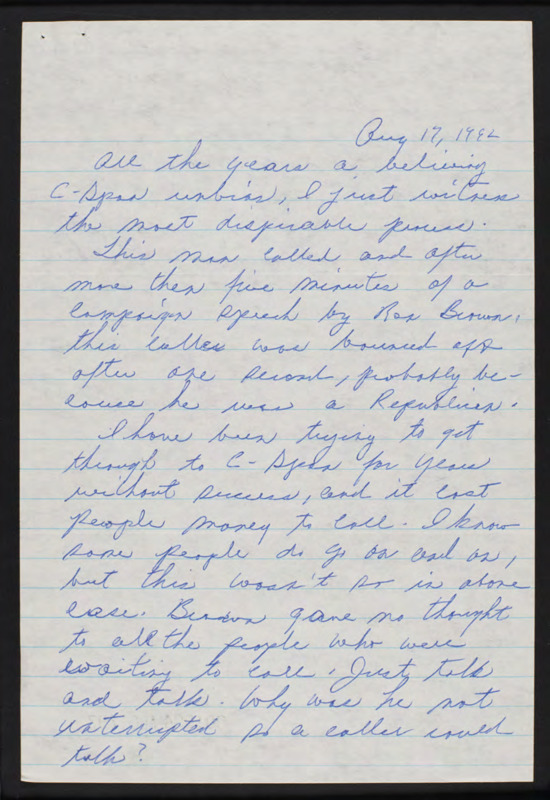 Aug 17, 1992
All the years a believing
C-Span unbias, I just witness
the most dispicable process.
This man called and after
more then five minutes of a
campaign speech by Ron Brown,
this caller was bounced off
after one second, probably be-
cause he was a Republican.
I have been trying to get
through to C-Span for years
without success, and it cost
people money to call. I know
some people do go on and on,
but this wasn't so in above
case. Brown gave no thought
to all the people who were
waiting to call. Just talk
and talk. Why was he not
interrupted so a caller could
talk?